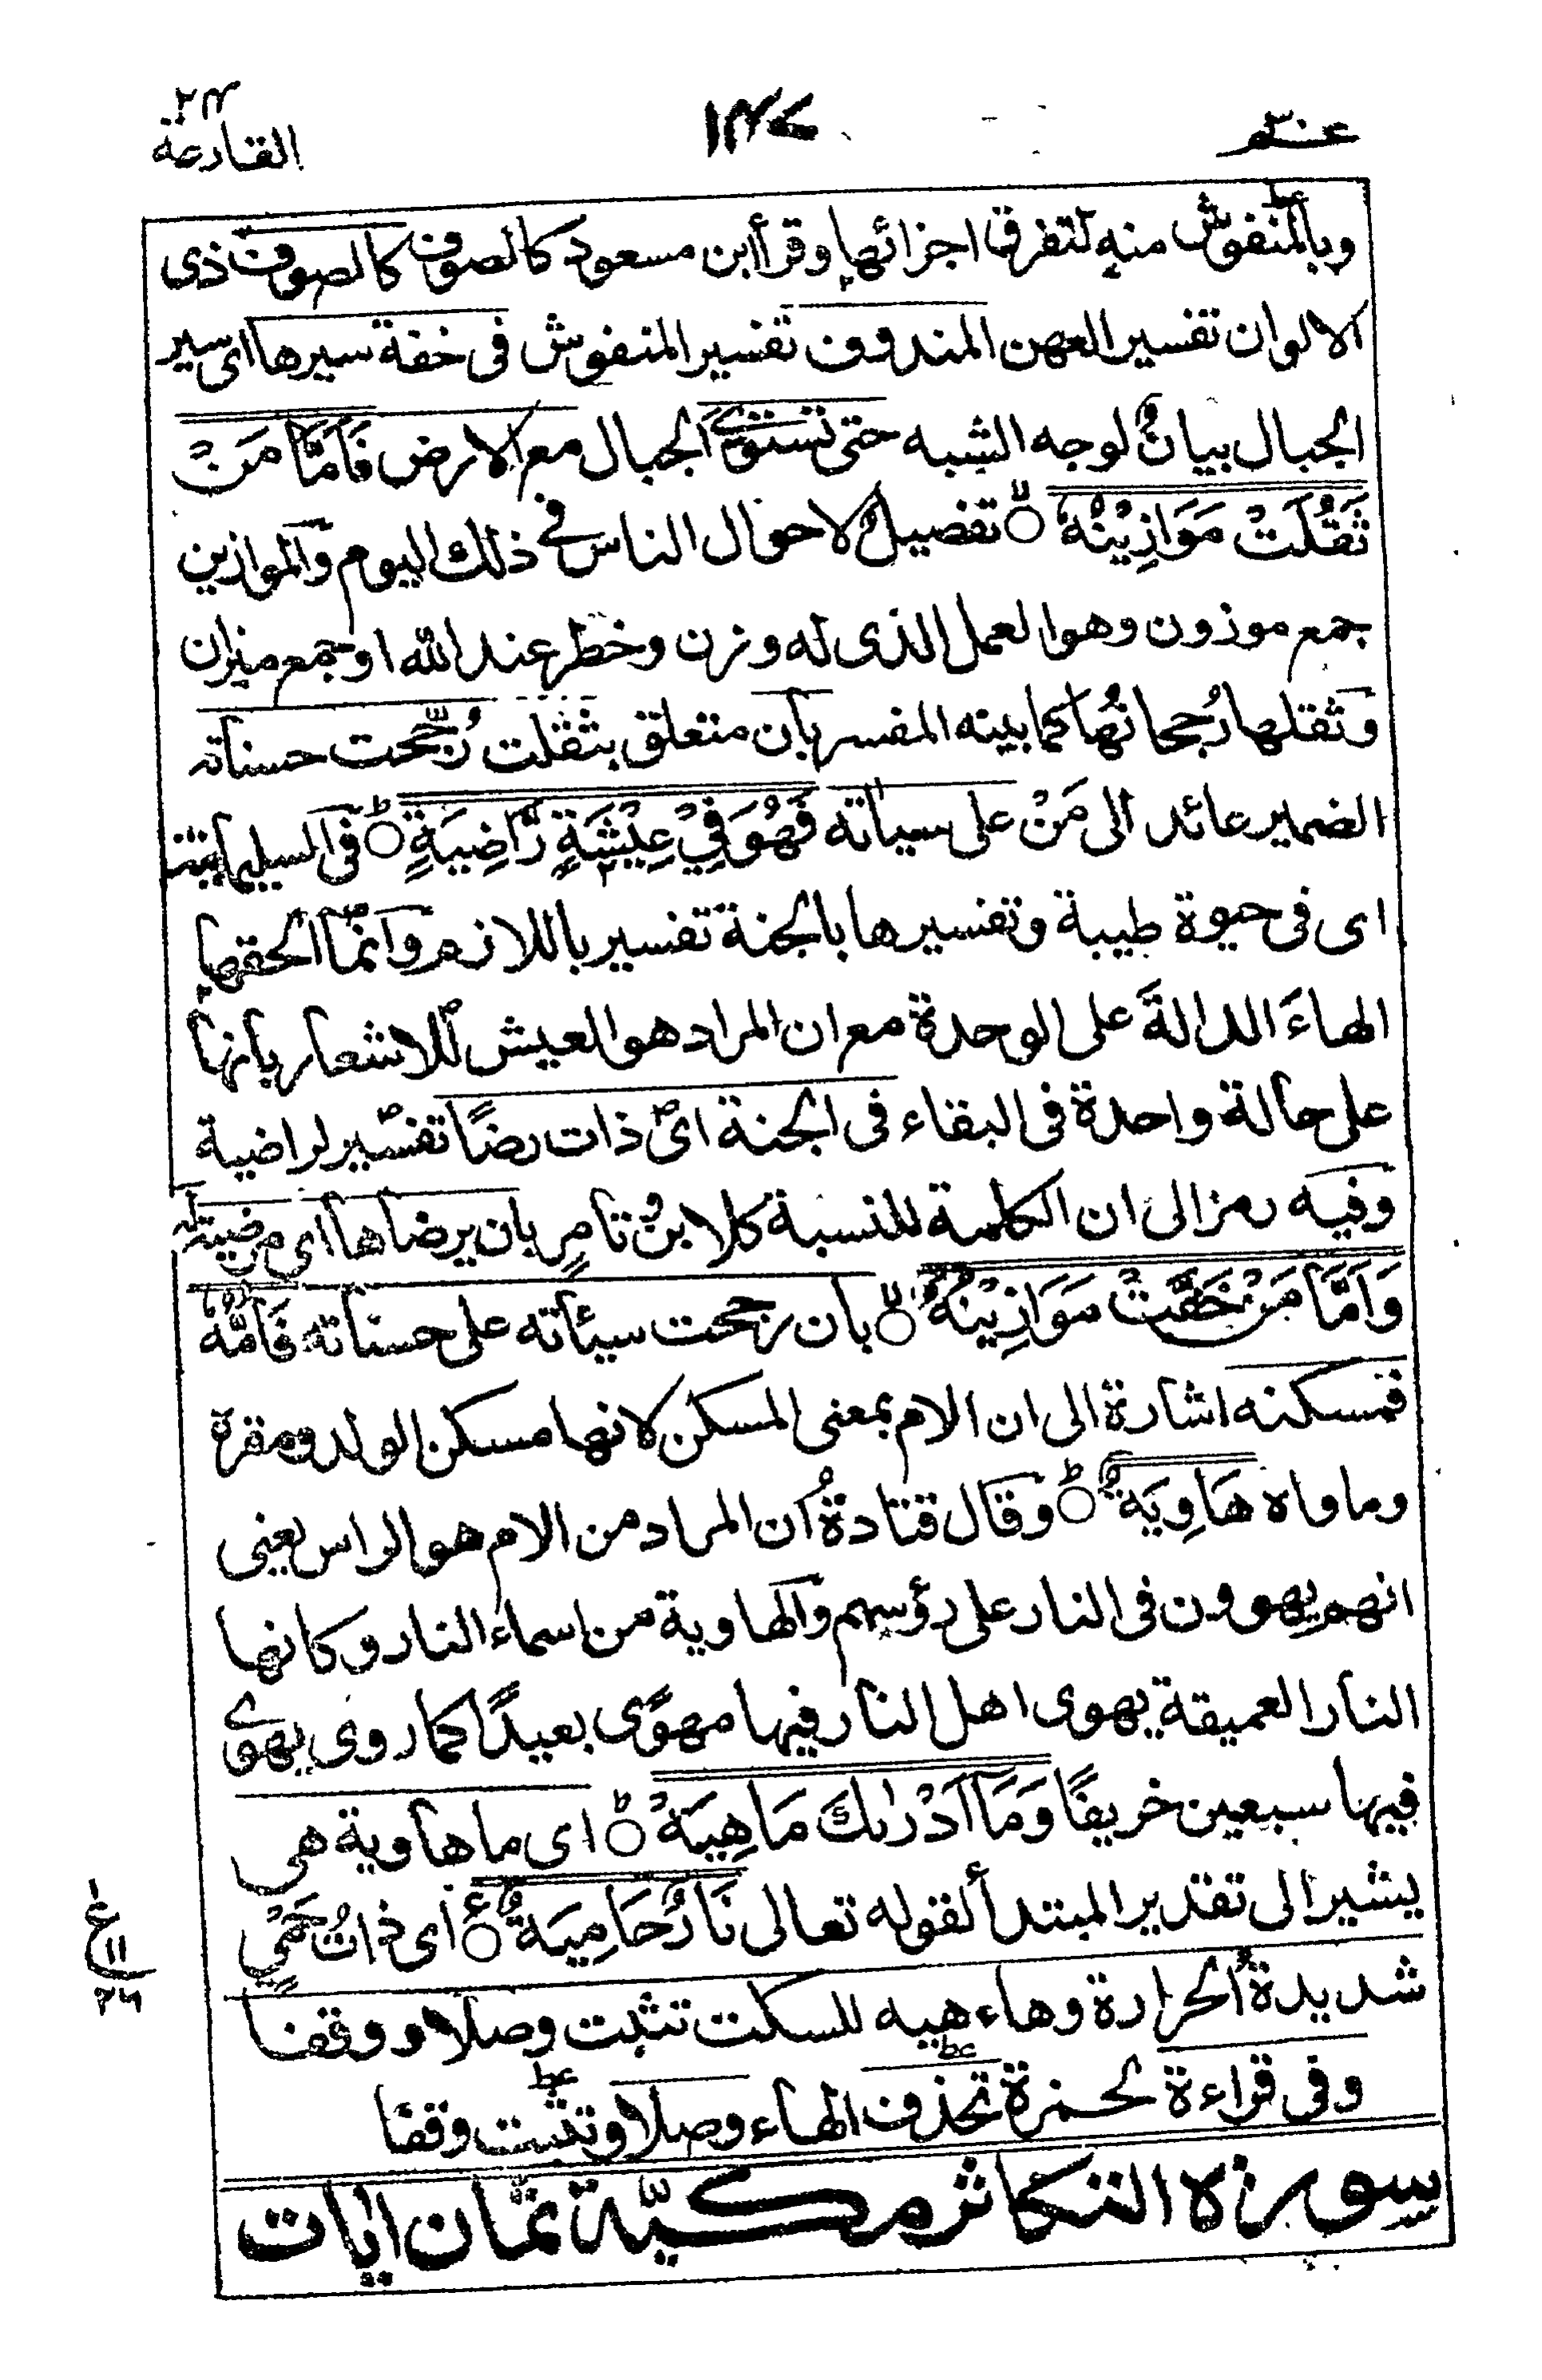 عمّ ٣٠
١٤٧
٢٤
القارعة
وبالمنفوش منه لتفرق اجزائها وقرأ ابن مسعود كالصوف كالصوف ذى
الالوان تفسير العهن المندوف تفسير المنفوش فى خفة سيرها اى سير
الجبال بيانٌ لوجه الشبه حتى تستوى الجبال مع الارض فَاَمَّا مَنْ
ثَقُلَتْ مَوَازِيْنُهٗ ۙ تفصيلٌ لاحوال الناس فى ذلك اليوم والموازين
جمع موزون وهو العمل الذى له وزن وخطر عند الله او جمع ميزان
وثقلها رُجحانُها كما بينه المفسر بأن متعلق بثقلت رُجّحت حسناته
الضمير عائد الى مَنْ على سيأته فَهُوَ فِيْ عِيْشَةٍ رَّاضِيَةٍ ۭ فى
اى فى حيوة طيبة وتفسيرها بالجنة تفسير باللازم وانما الحقها
الهاءَ الدالةَ على الوحدة مع ان المراد هو العيش للاشعار بانها
على حالة واحدة فى البقاء فى الجنة اى ذات رضًا تفسير لراضية
وفيه رمز الى ان الكلمة للنسبة كلابنٍ وتامرٍ بان يرضاها اى مرضية له
وَاَمَّا مَنْ خَفَّتْ مَوَازِيْنُهٗ ۙ بان رجحت سيئاته على حسناته فَاُمُّهٗ
فمسكنه اشارة الى ان الام بمعنى المسكن لانها مسكن الولد ومقره
وماواه هَاوِيَةٌ ۭ وقال قتادةُ ان المراد من الام هو الراس يعنى
انهم يهوون فى النار على رؤسهم والهاوية من اسماء النار وكانها
النار العميقة يهوى اهل النار فيها مهوًى بعيدًا كما روى يهوى
فيها سبعين خريفًا وَمَآ اَدْرٰىكَ مَاهِيَهْ ۭ اى ما هاوية هى
يشير الى تقدير المبتدأ لقوله تعالى نَارٌ حَامِيَةٌ ۧ اى ذاتُ حَمْيٍ
شديدةُ الحرارة وهاء هيه للسكت تثبت وصلا ووقفا
وفى قراءة لحمزة تحذف الهاء وصلا وتثبت وقفا
ع
١١
٢٦
سورة التكاثر مكيّة ثمان ايات